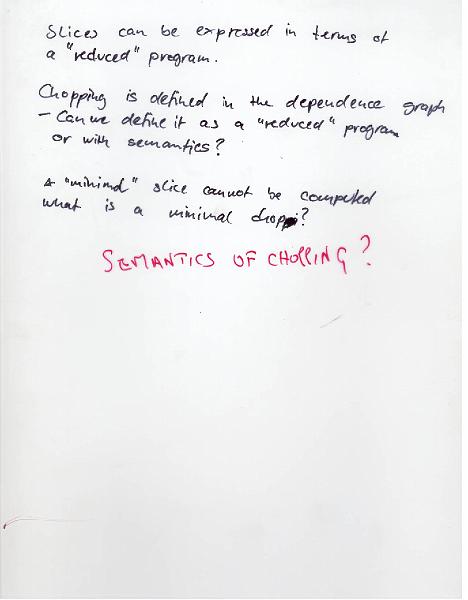 Slices can be expressed in terms of
a "reduced" program.
Chopping is defined in the dependence graph
- Can we define it as a "reduced" program
or with semantics?
A "minimal" slice cannot be computed
what is a minimal chop?
SEMANTICS OF CHOPPING?